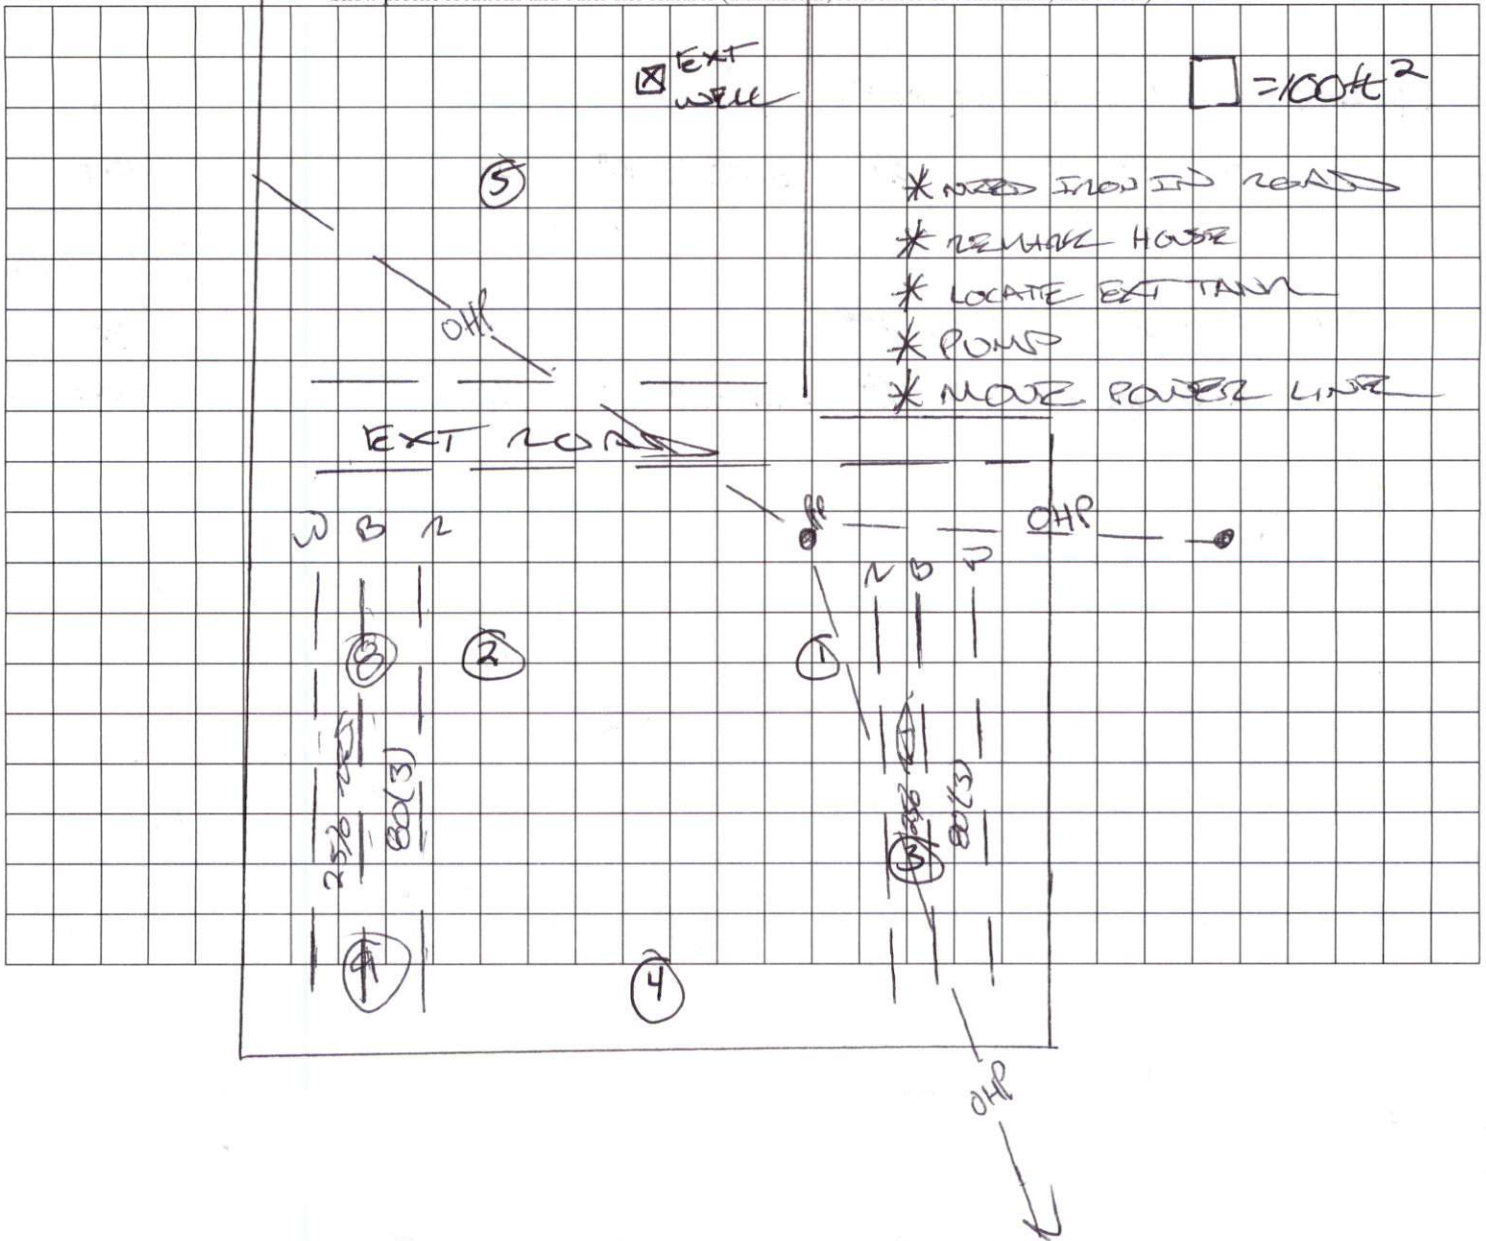 EXT
WELL
=100ft²
5
* NEED IRON IN ROAD
* REMARK HOUSE
* LOCATE EXT TANK
* PUMP
* MOVE POWER LINE
OHP
EXT ROAD
W B R
PP
OHP
R B W
8
2
1
25%
80(3)
25%
80(3)
3
4
OHP